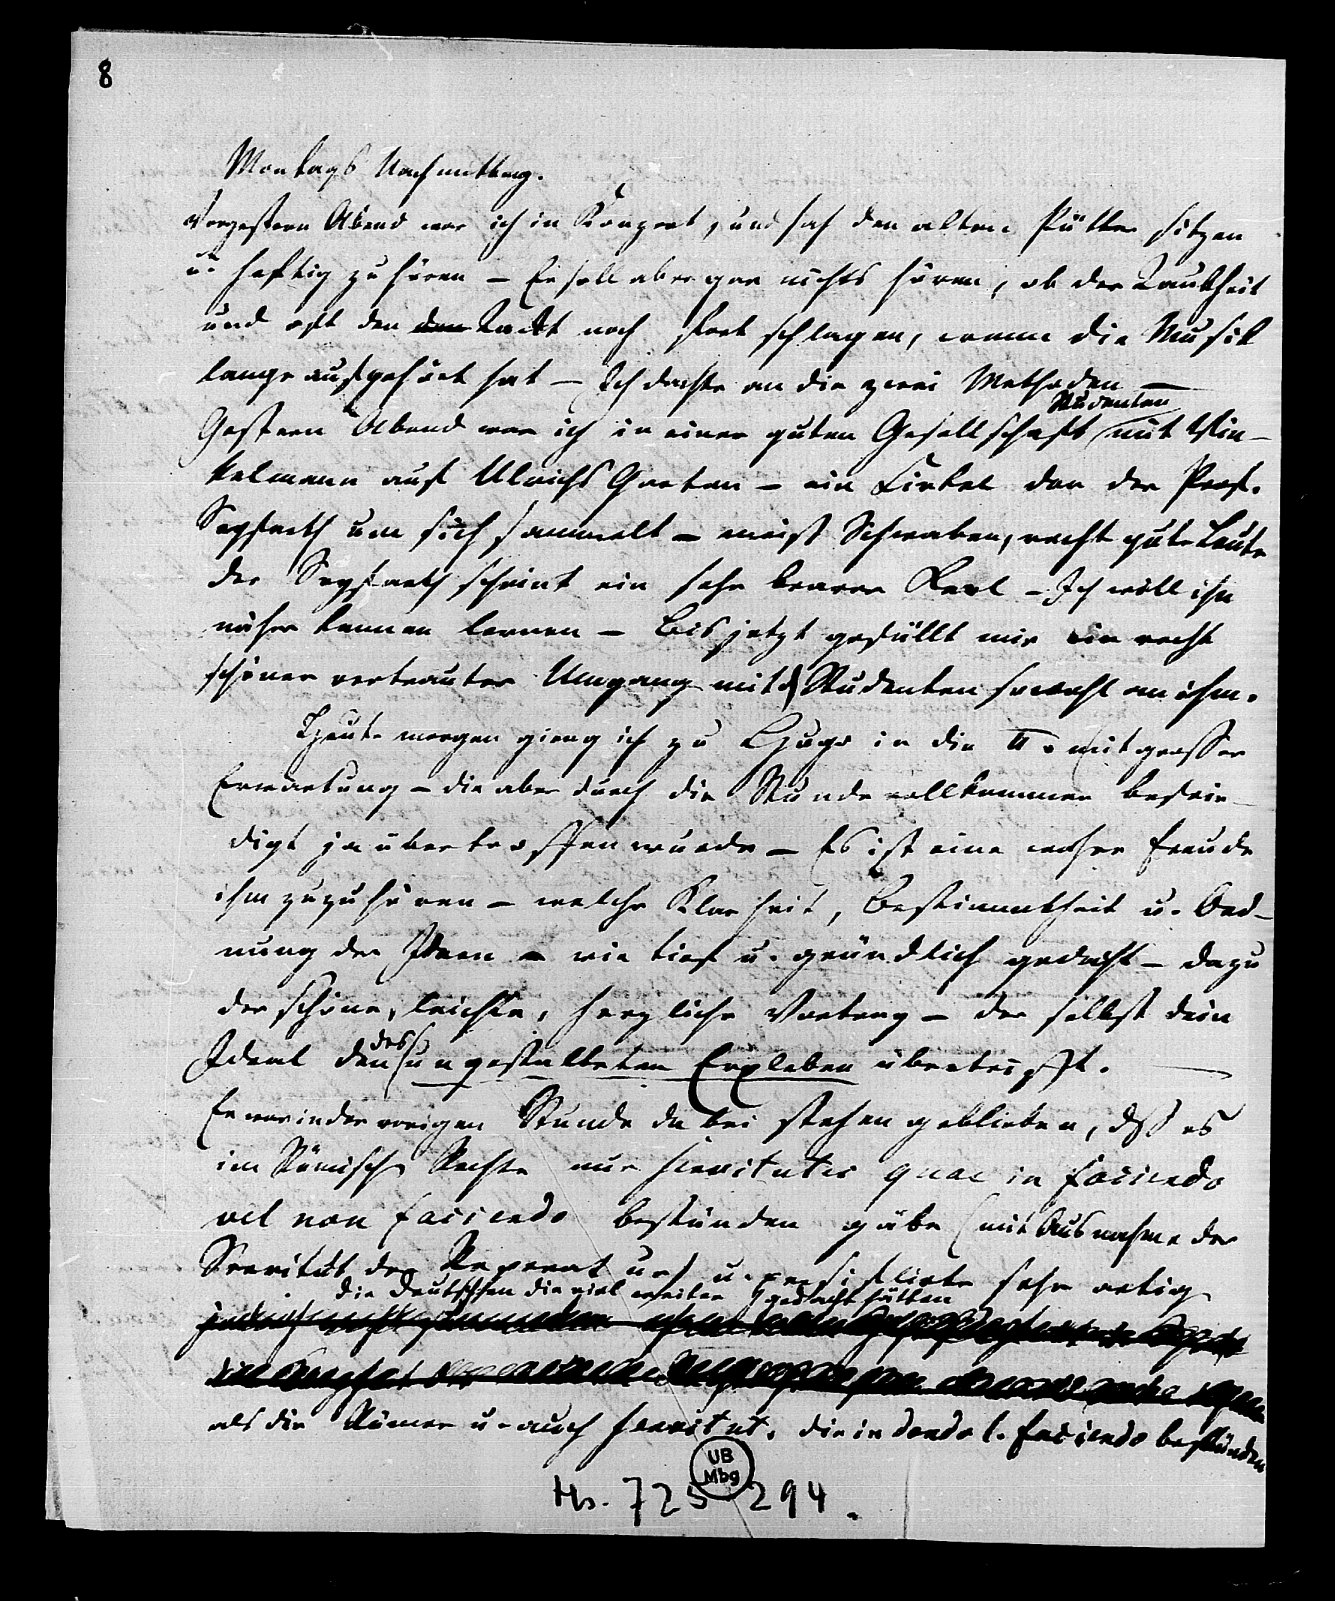 8
Montags Nachmittag.
Vorgestern Abend war ich in Konzert, und sah den alten Pütter sitzen
u. heftig zu hören – Er soll aber gar nichts hören, ob der Taubheit
und oft den den Takt noch fort schlagen, wenn die Musik
lange aufgehört hat – Ich dachte an die zwei Methoden –
Studenten
Gestern Abend war ich in einer guten Gesellschaft mit Win-
kelmann auf Ulrichs Garten – ein Cirkel den der Prof.
Seyffert um sich sammelt – meist Schwaben, recht gute Leute
der scheint ein sehr braver Kerl – Ich will ihn
näher kennen lernen – bis jetzt gefällt mir ein recht
schöner vertrauter Umgang mit d Studenten sowohl an ihm.
Heute morgen gieng ich zu Hugo in die mit grosser
Erwartung – die aber durch die Stunde vollkommen befrie-
digt ja übertroffen wurde – Es ist eine wahre Freude
ihm zuzuhören – welche Klarheit, Bestimmtheit u. Ord-
nung der Ideen – wie tief u. gründlich gedacht – dazu
der schöne, leichte, herzliche Vortrag – der selbst dein
des
Ideal den ungestalteten Erxleben übertrifft.
Er war in der vorigen Stunde dabei stehen geblieben, dß es
im Römischen Rechte nur servitutes quae in faciendo
vel non faciendo bestünden gäbe (mit Ausnahme der
Servitut der Reperatur) u. persiflirte sehr artig
die Deutschen die viel weiter gedacht hätten
als die Römer u. auch servitut. die in dando l. faciendo bestünden
UB
Mbg
Hs. 725 294.